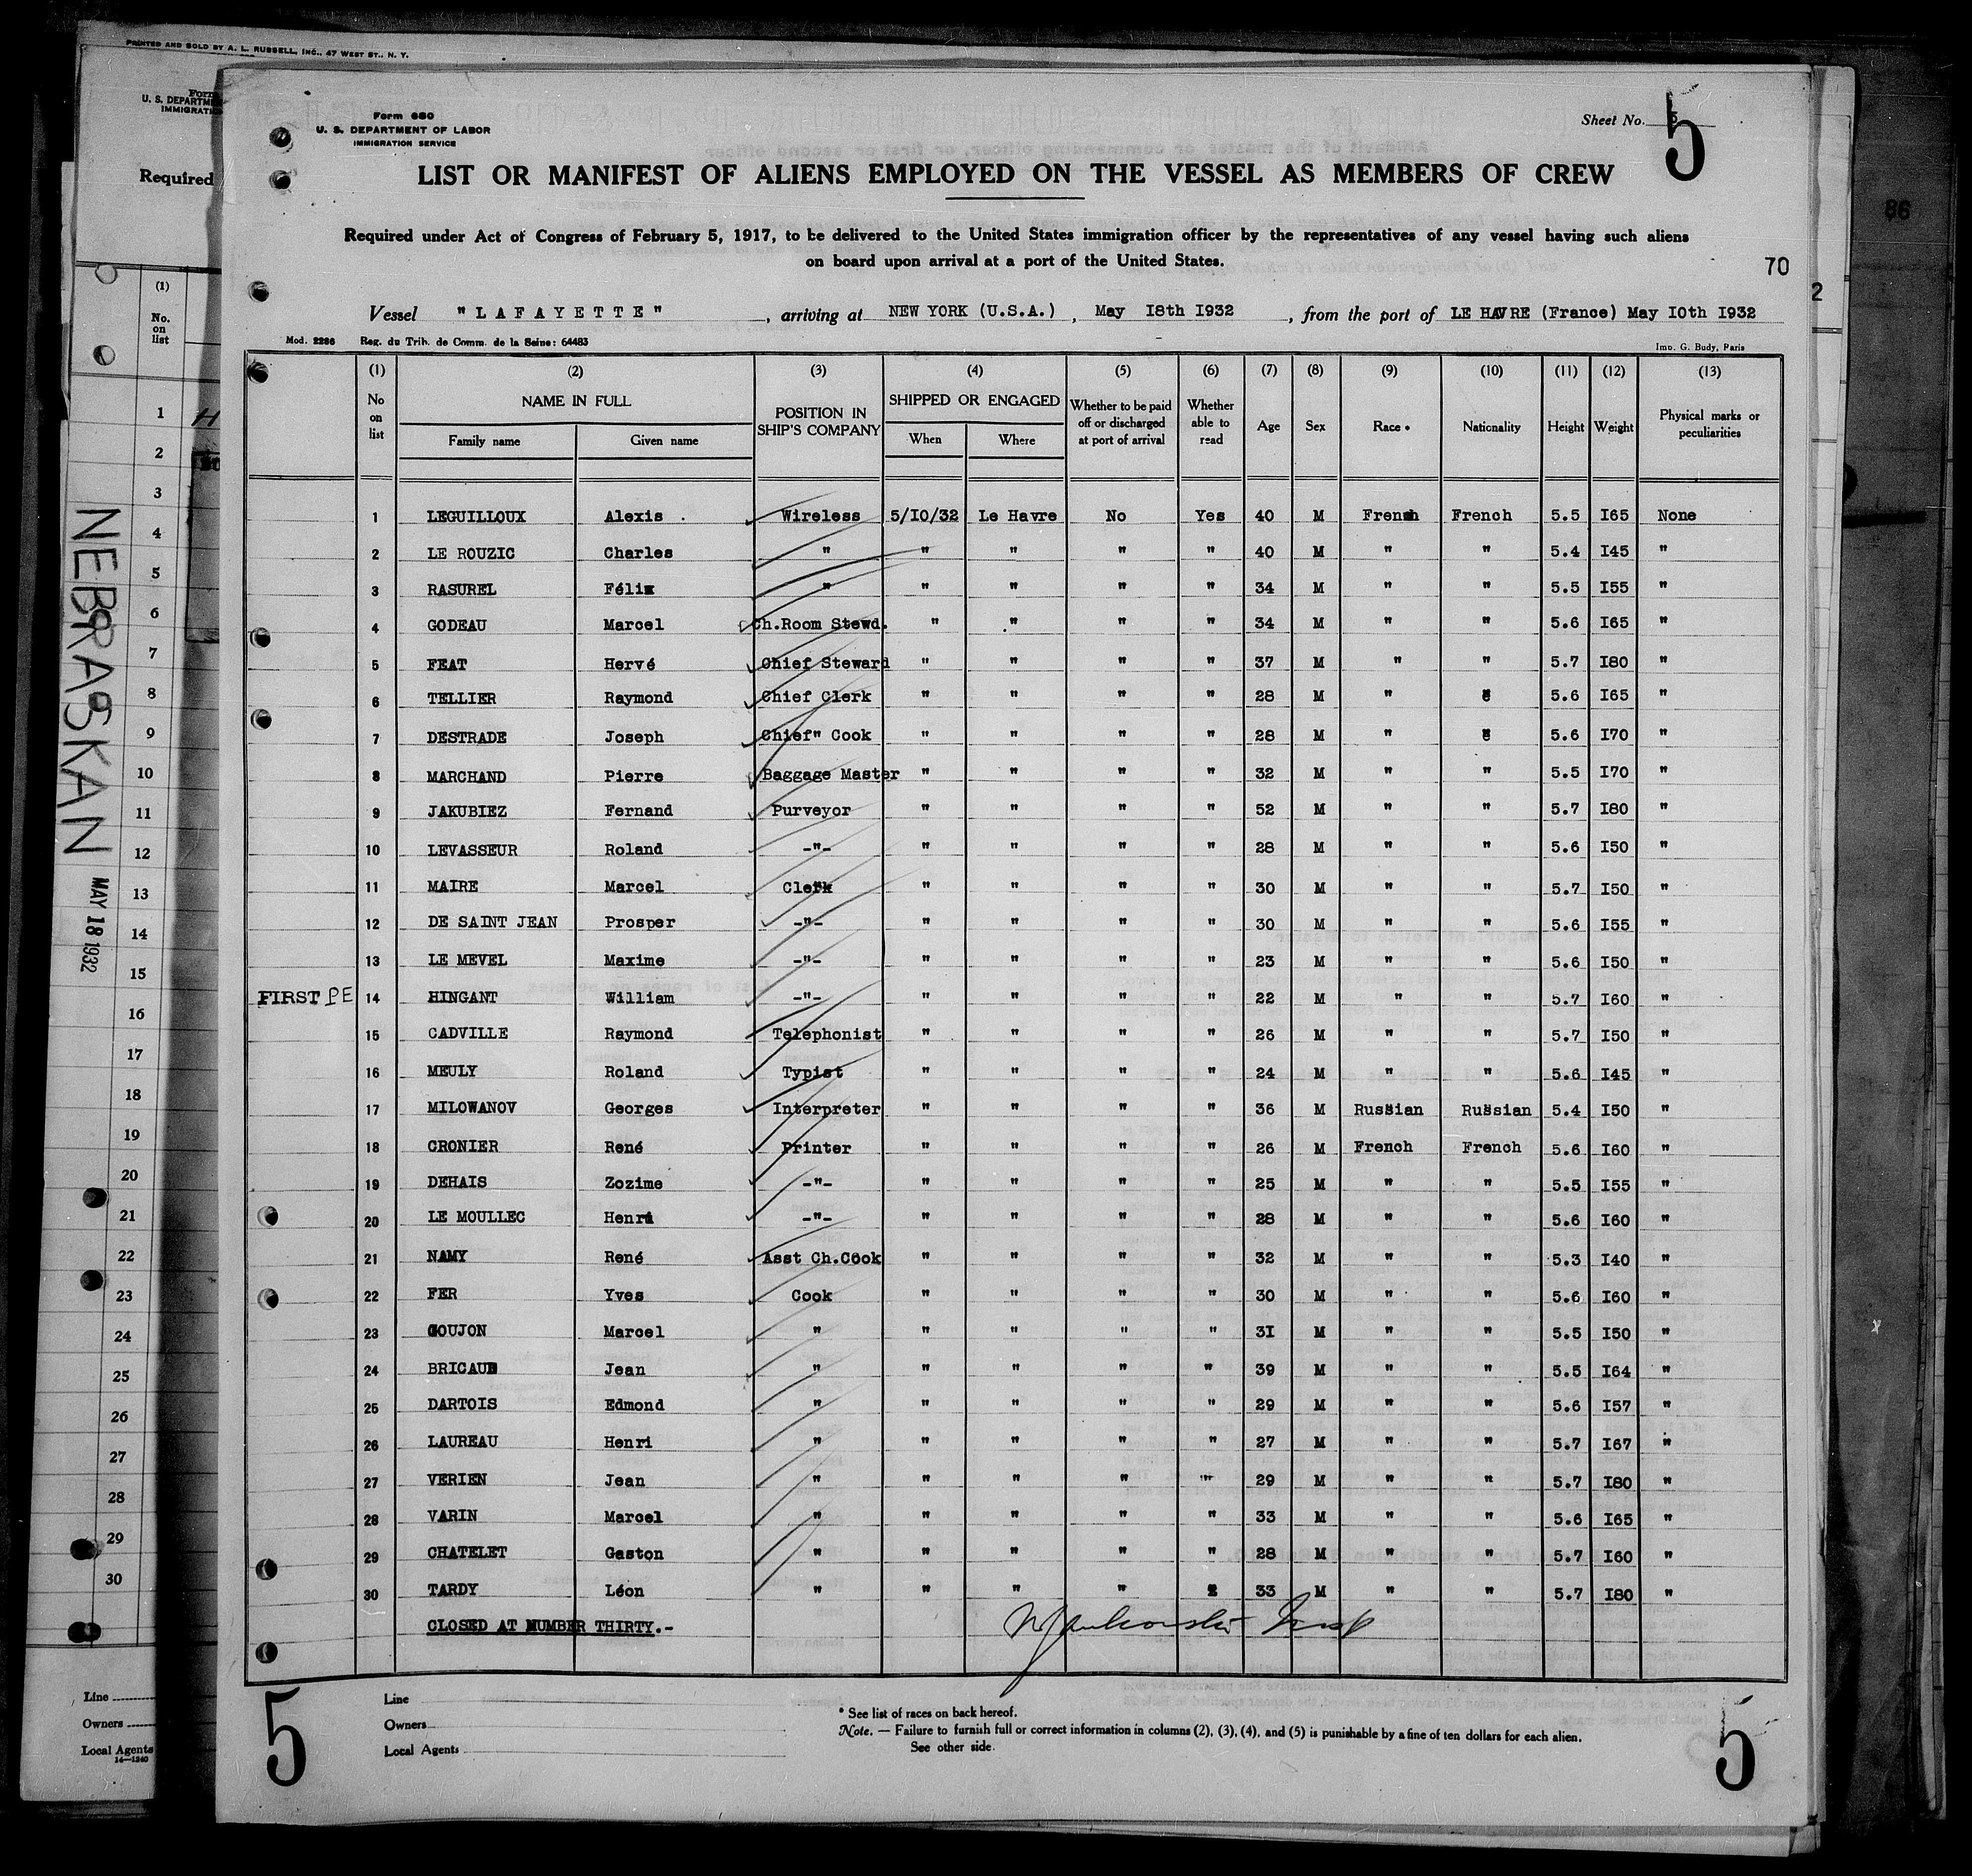 PRINTED AND SOLD BY A. L. RUSSELL, INC., 47 WEST ST., N. Y.
Form
U. S. DEPARTM
IMMIGRATI
Required
(1)
No.
on
list
1
2
3
4
5
6
7
8
9
10
11
12
13
14
15
16
17
18
19
20
21
22
23
24
25
26
27
28
29
30
NEBRASKAN MAY 18 1932
Line
Owners
Local Agents
14—1240
86
2
Form 680
U. S. DEPARTMENT OF LABOR
IMMIGRATION SERVICE
Sheet No. 5
LIST OR MANIFEST OF ALIENS EMPLOYED ON THE VESSEL AS MEMBERS OF CREW
Required under Act of Congress of February 5, 1917, to be delivered to the United States immigration officer by the representatives of any vessel having such aliens
on board upon arrival at a port of the United States.
70
Vessel "LAFAYETTE", arriving at NEW YORK (U.S.A.), May I8th I932, from the port of LE HAVRE (France) May I0th I932
Mod. 2286 Reg. du Trib. de Comm. de la Seine: 64483 Imp. G. Budy, Paris
(1) (2) (3) (4) (5) (6) (7) (8) (9) (10) (11) (12) (13)
No on list NAME IN FULL Family name Given name POSITION IN SHIP'S COMPANY SHIPPED OR ENGAGED When Where Whether to be paid off or discharged at port of arrival Whether able to read Age Sex Race * Nationality Height Weight Physical marks or peculiarities
1 LEGUILLOUX Alexis Wireless 5/I0/32 Le Havre No Yes 40 M French French 5.5 I65 None
2 LE ROUZIC Charles " " " " " 40 M " " 5.4 I45 "
3 RASUREL Félix " " " " " 34 M " " 5.5 I55 "
4 GODEAU Marcel Ch.Room Stewd. " " " " 34 M " " 5.6 I65 "
5 FEAT Hervé Chief Steward " " " " 37 M " " 5.7 I80 "
6 TELLIER Raymond Chief Clerk " " " " 28 M " " 5.6 I65 "
7 DESTRADE Joseph Chief" Cook " " " " 28 M " " 5.6 I70 "
8 MARCHAND Pierre Baggage Master " " " " 32 M " " 5.5 I70 "
9 JAKUBIEZ Fernand Purveyor " " " " 52 M " " 5.7 I80 "
10 LEVASSEUR Roland -"- " " " " 28 M " " 5.6 I50 "
11 MAIRE Marcel Clerk " " " " 30 M " " 5.7 I50 "
12 DE SAINT JEAN Prosper -"- " " " " 30 M " " 5.6 I55 "
13 LE MEVEL Maxime -"- " " " " 23 M " " 5.6 I50 "
FIRST PE 14 HINGANT William -"- " " " " 22 M " " 5.7 I60 "
15 CADVILLE Raymond Telephonist " " " " 26 M " " 5.7 I50 "
16 MEULY Roland Typist " " " " 24 M " " 5.6 I45 "
17 MILOWANOV Georges Interpreter " " " " 36 M Russian Russian 5.4 I50 "
18 CRONIER René Printer " " " " 26 M French French 5.6 I60 "
19 DEHAIS Zozime -"- " " " " 25 M " " 5.5 I55 "
20 LE MOULLEC Henri -"- " " " " 28 M " " 5.6 I60 "
21 NAMY René Asst Ch.Cook " " " " 32 M " " 5.3 I40 "
22 FER Yves Cook " " " " 30 M " " 5.6 I60 "
23 GOUJON Marcel " " " " " 3I M " " 5.5 I50 "
24 BRICAUD Jean " " " " " 39 M " " 5.5 I64 "
25 DARTOIS Edmond " " " " " 29 M " " 5.6 I57 "
26 LAUREAU Henri " " " " " 27 M " " 5.7 I67 "
27 VERIEN Jean " " " " " 29 M " " 5.7 I80 "
28 VARIN Marcel " " " " " 33 M " " 5.6 I65 "
29 CHATELET Gaston " " " " " 28 M " " 5.7 I60 "
30 TARDY Léon " " " " " 33 M " " 5.7 I80 "
CLOSED AT NUMBER THIRTY.-
5
Line
Owners
Local Agents
* See list of races on back hereof.
Note. — Failure to furnish full or correct information in columns (2), (3), (4), and (5) is punishable by a fine of ten dollars for each alien.
See other side.
5